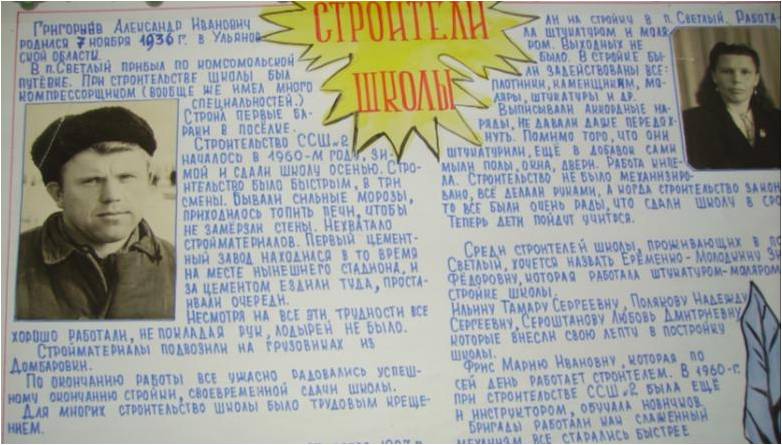 СТРОИТЕЛИ
ШКОЛЫ
Григорьев Александр Иванович
родился 7 ноября 1936 г. в Ульянов
ской области.
В п. Светлый прибыл по комсомольской
путёвке. При строительстве школы был
компрессорщиком (вообще же имел много
специальностей.)
Строил первые ба-
раки в посёлке.
Строительство ССШ №2
началось в 1960-м году, зи-
мой и сдали школу осенью. Стро-
ительство было быстрым, в три
смены. Бывали сильные морозы,
приходилось топить печи, чтобы
не замёрзли стены. Нехватало
стройматериалов. Первый цемент-
ный завод находился в то время
на месте нынешнего стадиона, и
за цементом ездили туда, проста-
ивали очереди.
Несмотря на все эти трудности все
хорошо работали, не покладая рук, лодырей не было.
Стройматериалы подвозили на грузовиках из
Домбаровки.
По окончанию работы все ужасно радовались успеш-
ному окончанию стройки, своевременной сдачи школы.
Для многих строительство школы было трудовым креще-
нием.
ли на стройку в п. Светлый. Работа
ла штукатуром и маля
ром. Выходных не
было. В стройке бы-
ли задействованы все:
плотники, каменщики, ма-
ляры, штукатуры и др.
Выписывали аккордные на-
ряды, не давали даже передох-
нуть. Помимо того, что они
штукатурили, ещё в добавок сами
мыли полы, окна, двери. Работа кипе-
ла. Строительство не было механизиро-
вано, всё делали руками, а когда строительство
то все были очень рады, что сдали школу в
Теперь дети пойдут учиться.
Среди строителей школы, проживающих в
Светлый, хочется назвать Ерёменко-Молодкину
Фёдоровну, которая работала штукатуром-маляром
стройке школы.
Ильину Тамару Сергеевну, Полякову Надежду
Сергеевну, Сероштанову Любовь Дмитриевну
которые внесли свою лепту в постройку
школы.
Фрис Марию Ивановну, которая по
сей день работает строителем. В 1960-г.
при строительстве ССШ №2 была ещё
и инструктором, обучала новичков.
Бригады работали как слаженный
механизм все старались быстрее